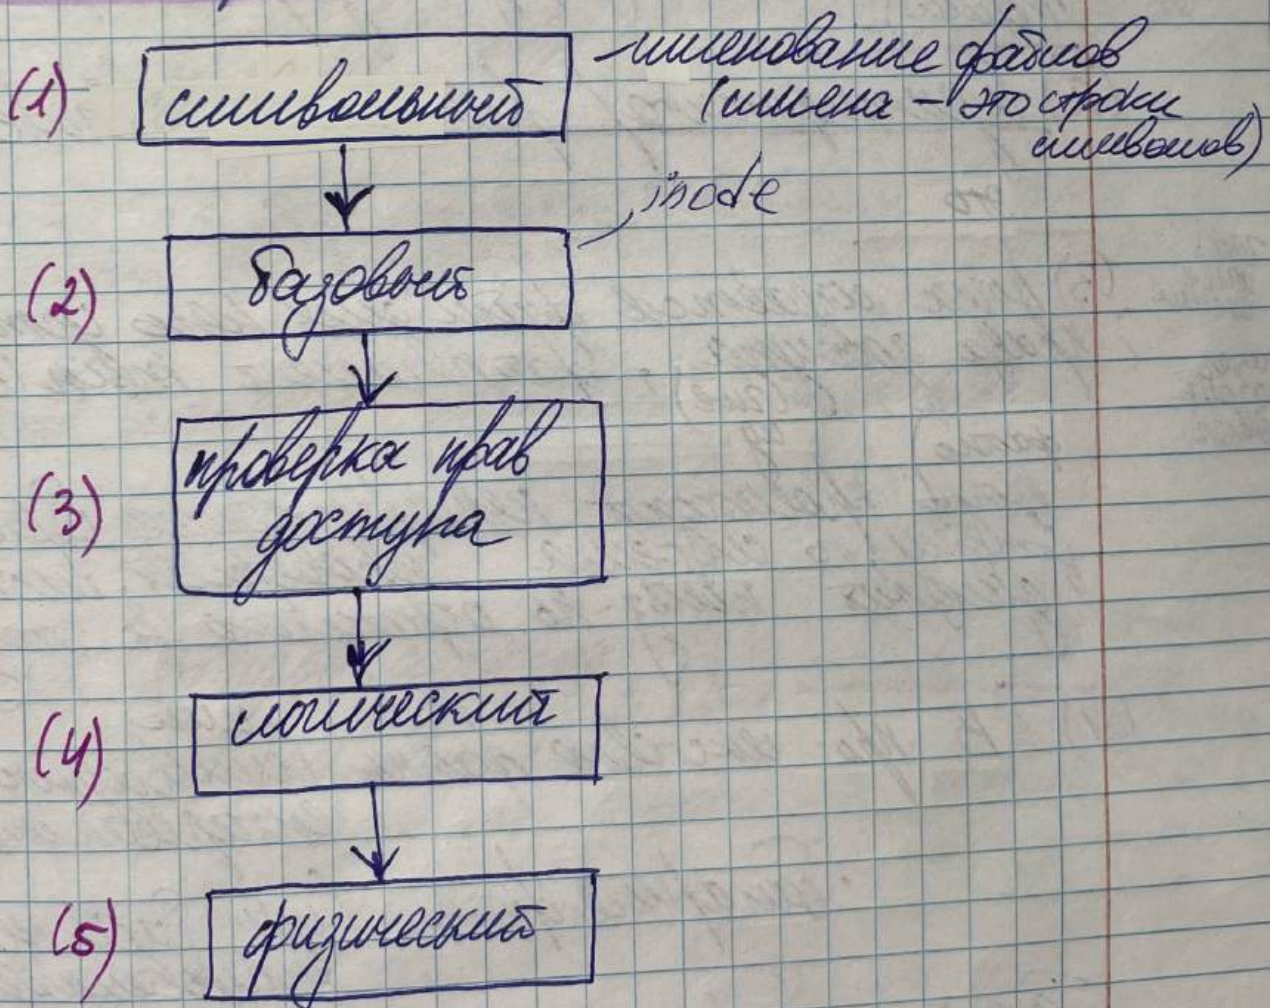 (1) символьный
- именование файлов
(имена - это строки
символов)
inode
(2) базовый
(3) проверка прав
доступа
(4) логический
(5) физический